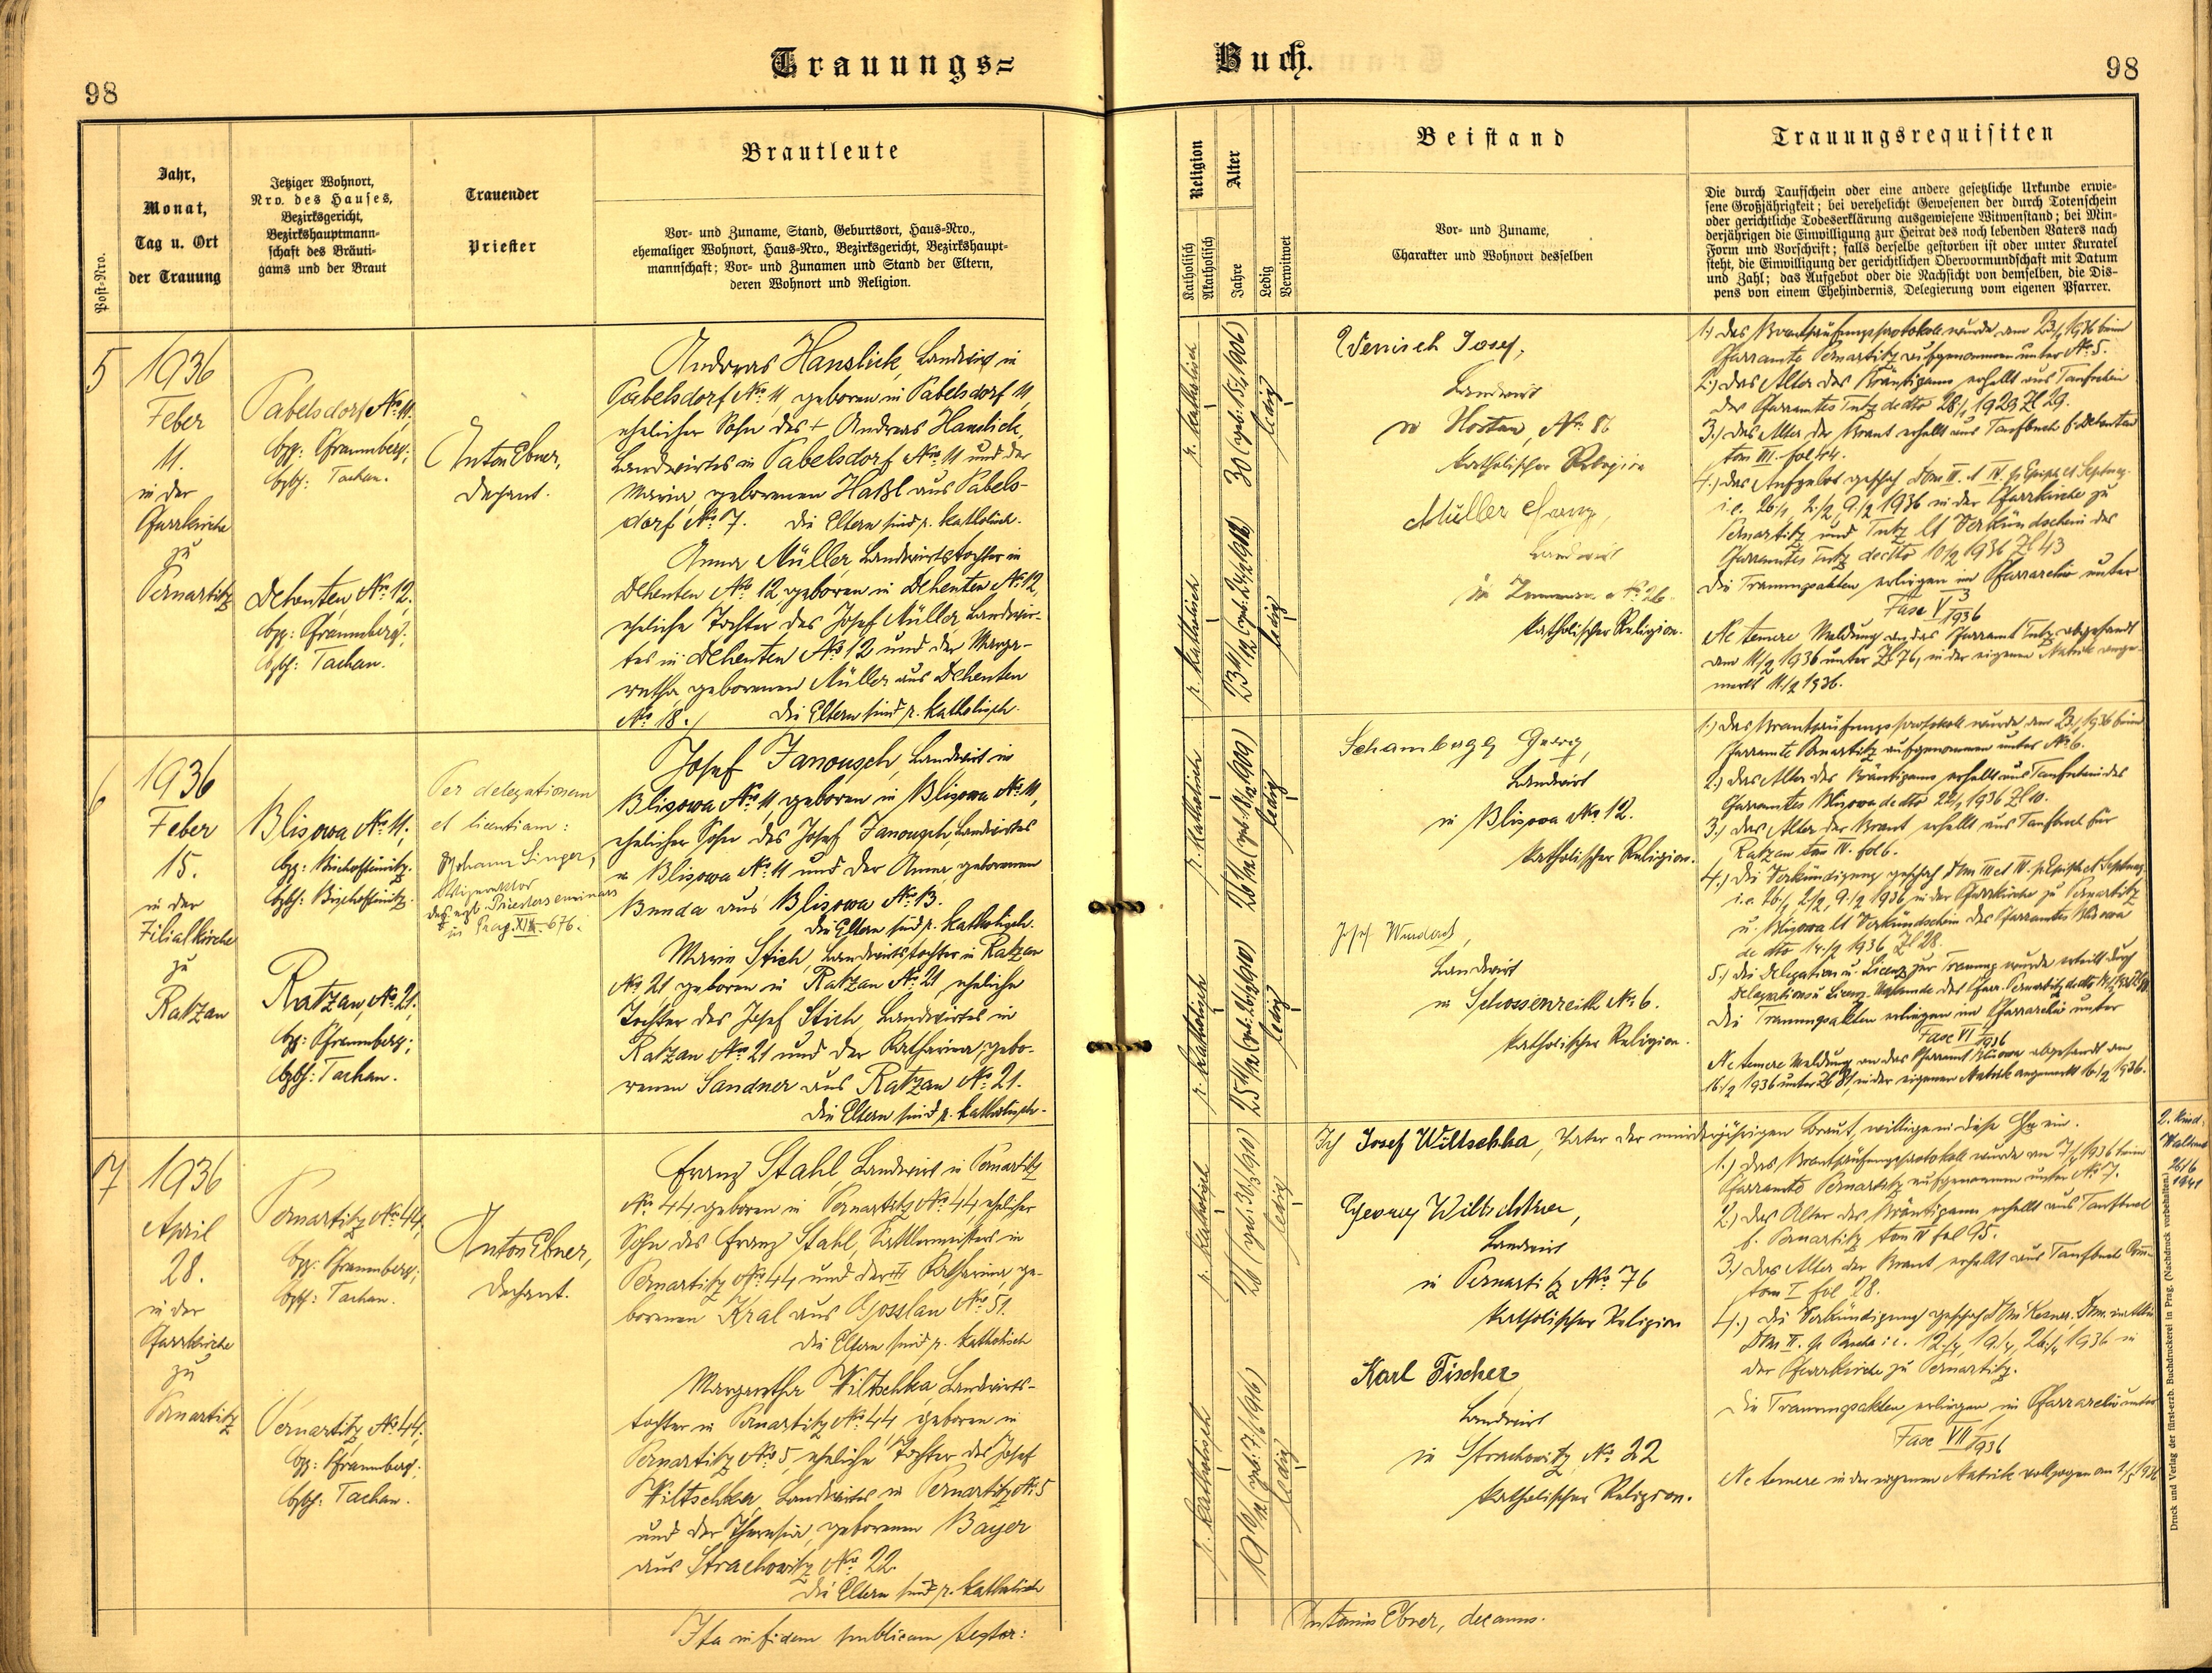 98
Trauungs=
Buch.
98
Post-Nro.
Jahr,
Monat,
Tag u. Ort
der Trauung
Jetziger Wohnort,
Nro. des Hauses,
Bezirksgericht,
Bezirkshauptmann-
schaft des Bräuti-
gams und der Braut
Trauender
Priester
Brautleute
Vor- und Zuname, Stand, Geburtsort, Haus-Nro.,
ehemaliger Wohnort, Haus-Nro., Bezirksgericht, Bezirkshaupt-
mannschaft; Vor- und Zunamen und Stand der Eltern,
deren Wohnort und Religion.
Religion
Katholisch
Akatholisch
Alter
Jahre
Ledig
Verwitwet
Beistand
Vor- und Zuname,
Charakter und Wohnort desselben
Trauungsrequisiten
Die durch Taufschein oder eine andere gesetzliche Urkunde erwie-
sene Großjährigkeit; bei verehelicht Gewesenen der durch Totenschein
oder gerichtliche Todeserklärung ausgewiesene Witwenstand; bei Min-
derjährigen die Einwilligung zur Heirat des noch lebenden Vaters nach
Form und Vorschrift; falls derselbe gestorben ist oder unter Kuratel
steht, die Einwilligung der gerichtlichen Obervormundschaft mit Datum
und Zahl; das Aufgebot oder die Nachsicht von demselben, die Dis-
pens von einem Ehehindernis, Delegierung vom eigenen Pfarrer.
5
1936
Feber
11.
in der
Pfarrkirche
zu
Pernartitz
Pabelsdorf No. 11.
bzg: Pfraumberg;
bzbh: Tachau.
Dehenten No. 12.
bzg: Pfraumberg;
bzbh: Tachau.
Anton Ebner,
Dechant.
Andreas Hanslick, Landwirt in
Pabelsdorf No. 11, geboren in Pabelsdorf 11,
ehelicher Sohn des + Andreas Hanslick,
Landwirtes in Pabelsdorf No. 11 und der
Maria, geborenen Haßl aus Pabels-
dorf No. 7. Die Eltern sind r. katholisch.
Anna Müller, Landwirtstochter in
Dehenten No. 12 geboren in Dehenten No. 12,
eheliche Tochter des Josef Müller Landwir-
tes in Dehenten No. 12 und der Marga-
retha geborenen Müller aus Dehenten
No. 18./ Die Eltern sind r. katholisch.
r. katholisch
30 (geb: 15/4 1906)
ledig
r. katholisch
ledig
Wenisch Josef,
Landwirt
in Hostau, No. 86
katholischer Religion
Müller Franz,
Landwirt
No. 26.
katholischer Religion.
1.) Das Brautprüfungsprotokoll wurde am 23/1 1936 beim
Pfarramte Pernartitz aufgenommen unter No. 5.
2.) Das Alter des Bräutigams erhellt aus Taufschein
des Pfarramtes Tutz de dto 28/1 1923 Zl 29.
3.) Das Alter der Braut erhellt aus Taufbuch f. Dehenten
tom III. fol 44.
4.) Das Aufgebot geschah Dom III. et IV. p. Epiph. et Septuag.
i.e. 26/1, 2./2, 9./2 1936 in der Pfarrkirche zu
Pernartitz und Tutz lt Verkündschein des
Pfarramtes Tutz de dto 10/2 1936 Zl 43
Die Trauungsakten erliegen im Pfarrarchiv unter
Fasc V 3/1936
Ne temere Meldung an das Pfarramt Tutz abgesandt
am 11/2 1936 unter Zl 76, in der eigenen Matrik ange-
merkt 11/2 1936.
6
1936
Feber
15.
in der
Filialkirche
zu
Ratzau
Blisowa No. 11;
bzg: Bischofteinitz.
bzbh: Bischofteinitz.
Ratzau, No. 21;
bzg: Pfraumberg;
bzbh: Tachau.
Per delegationem
et licentiam:
Johann Singer,
Vizerektor
des egt. Priesterseminars
in Prag. XIX-676.
Josef Janousch, Landwirt in
Blisowa No. 11 geboren in Blisowa No. 11,
ehelicher Sohn des Josef Janousch, Landwirtes
in Blisowa No. 11 und der Anna, geborenen
Bunda aus Blisowa No. 13.
Die Eltern sind r. katholisch.
Marie Stich, Landwirtstochter in Ratzau
No. 21 geboren in Ratzau No. 21, eheliche
Tochter des Josef Stich Landwirtes in
Ratzau No. 21 und der Katharina, gebo-
renen Sandner aus Ratzau No. 21.
Die Eltern sind r. katholisch.
r. katholisch
ledig
r. katholisch
ledig
Schambergg Georg,
Landwirt
in Blisowa No. 12.
katholischer Religion.
Josef
Landwirt
in Schossenreith No. 6.
katholischer Religion.
1.) Das Brautprüfungsprotokoll wurde am 23/1 1936 beim
Pfarramte Pernartitz aufgenommen unter No. 6.
2.) Das Alter des Bräutigams erhellt aus Taufschein des
Pfarramtes Blisowa de dto 22/1 1936 Zl 10.
3.) Das Alter der Braut erhellt aus Taufbuch für
Ratzau tom IV. fol 6.
4.) Die Verkündigung geschah Dom III et IV. p Epiph et Septuag.
i.e. 26./1, 2/2, 9./2 1936 in der Pfarrkirche zu Pernartitz
u. Blisowa lt Verkündschein des Pfarramtes Blisowa
de dto 14./2 1936, Zl 28.
5.) Die Delegation u. Licenz zur Trauung wurde erteilt durch
Delegations u. Licenz-Urkunde des Pfarr. Pernartitz de dto
Die Trauungsakten erliegen im Pfarrarchiv unter
Fasc VI 1936
Ne temere Meldung an das Pfarramt Blisowa abgesandt am
16./2 1936 unter Zl 81, in der eigenen Matrik angemerkt 16./2 1936.
7
1936
April
28.
in der
Pfarrkirche
zu
Pernartitz
Pernartitz No. 44,
bzg: Pfraumberg;
bzbh: Tachau.
Pernartitz, No. 44;
bzg: Pfraumberg;
bzbh: Tachau.
Anton Ebner,
Dechant.
Franz Stahl Landwirt in Pernartitz
No. 44 geboren in Pernartitz No. 44, ehelicher
Sohn des Franz Stahl, Sattlermeisters in
Pernartitz No. 44 und der Katharina, ge-
borenen Kral aus Gosslau No. 51.
Die Eltern sind r. katholisch
Margaretha Wiltschka, Landwirts-
tochter in Pernartitz No. 44, geboren in
Pernartitz No. 5, eheliche Tochter des Josef
Wiltschka, Landwirtes in Pernartitz No. 5
und der Theresia, geborenen Bayer
aus Strachowitz No. 22.
Die Eltern sind r. katholisch
r. katholisch
26 (geb: 30/3 1910)
ledig
r. katholisch
ledig
Ich Josef Wiltschka, Vater der minderjährigen Braut, willige in diese Ehe ein.
Georg Wiltschka,
Landwirt
in Pernartitz No. 76
katholischer Religion
Karl Fischer
Landwirt
in Strachowitz No. 22
katholischer Religion.
1.) Das Brautprüfungsprotokoll wurde am 7/4 1936 beim
Pfarramte Pernartitz aufgenommen unter No. 7.
2.) Das Alter des Bräutigams erhellt aus Taufbuch
f. Pernartitz tom IV fol 95.
3.) Das Alter der Braut erhellt aus Taufbuch
tom I fol 28.
4.) Die Verkündigung geschah Dom Resurr. Dom. in Albis
Dom II. p. Pascha i.e. 12./4, 19./4, 26./4 1936 in
der Pfarrkirche zu Pernartitz.
Die Trauungsakten erliegen im Pfarrarchiv unter
Fasc VII 1936
Ne temere in der eigenen Matrik vollzogen am
2. Kind:
26/6
1941
Druck und Verlag der fürst-erzb. Buchdruckerei in Prag. (Nachdruck vorbehalten.)
Ita in fidem publicam testor:
Antonius Ebner, decanus.